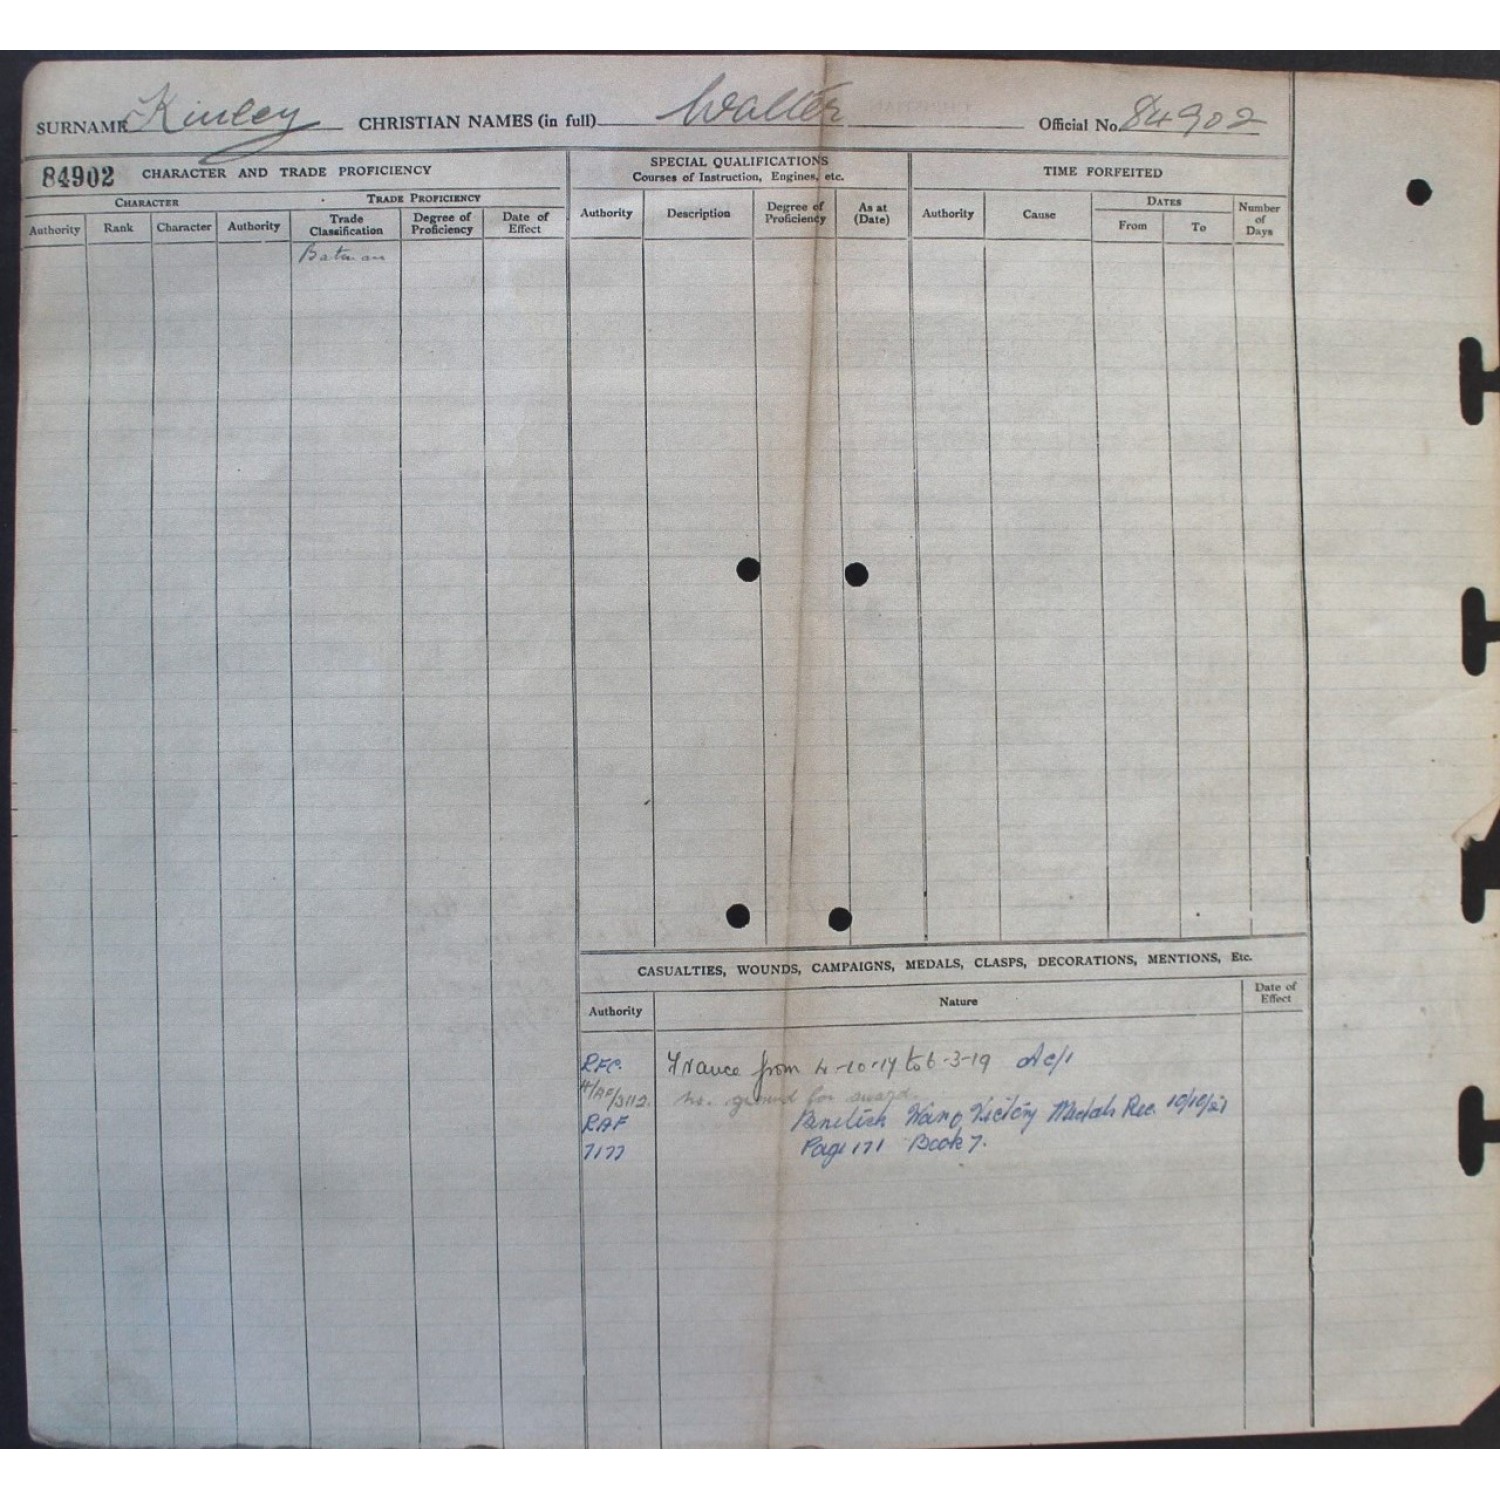 SURNAME Kinley CHRISTIAN NAMES (in full) Walter Official No. 84902
84902 CHARACTER AND TRADE PROFICIENCY
CHARACTER TRADE PROFICIENCY
Authority Rank Character Authority Trade Classification Degree of Proficiency Date of Effect
Batman
SPECIAL QUALIFICATIONS
Courses of Instruction, Engines, etc.
Authority Description Degree of Proficiency As at (Date)
TIME FORFEITED
Authority Cause DATES From To Number of Days
CASUALTIES, WOUNDS, CAMPAIGNS, MEDALS, CLASPS, DECORATIONS, MENTIONS, Etc.
Authority Nature Date of Effect
RFC. France from 4-10-17 to 6-3-19 Ac/1
/AF/3112. no. ground for award.
RAF British War & Victory Medals Rec. 10/10/21
7177 Page 171 Book 7.